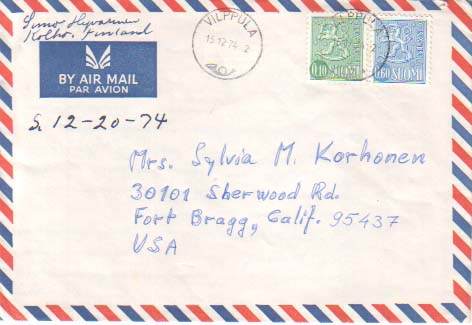 Kolho, Finland
BY AIR MAIL
PAR AVION
VILPPULA
15.12.74-2
0,10 SUOMI
0,60 SUOMI
12-20-74
Mrs. Sylvia M. Korhonen
30101 Sherwood Rd.
Fort Bragg, Calif. 95437
USA